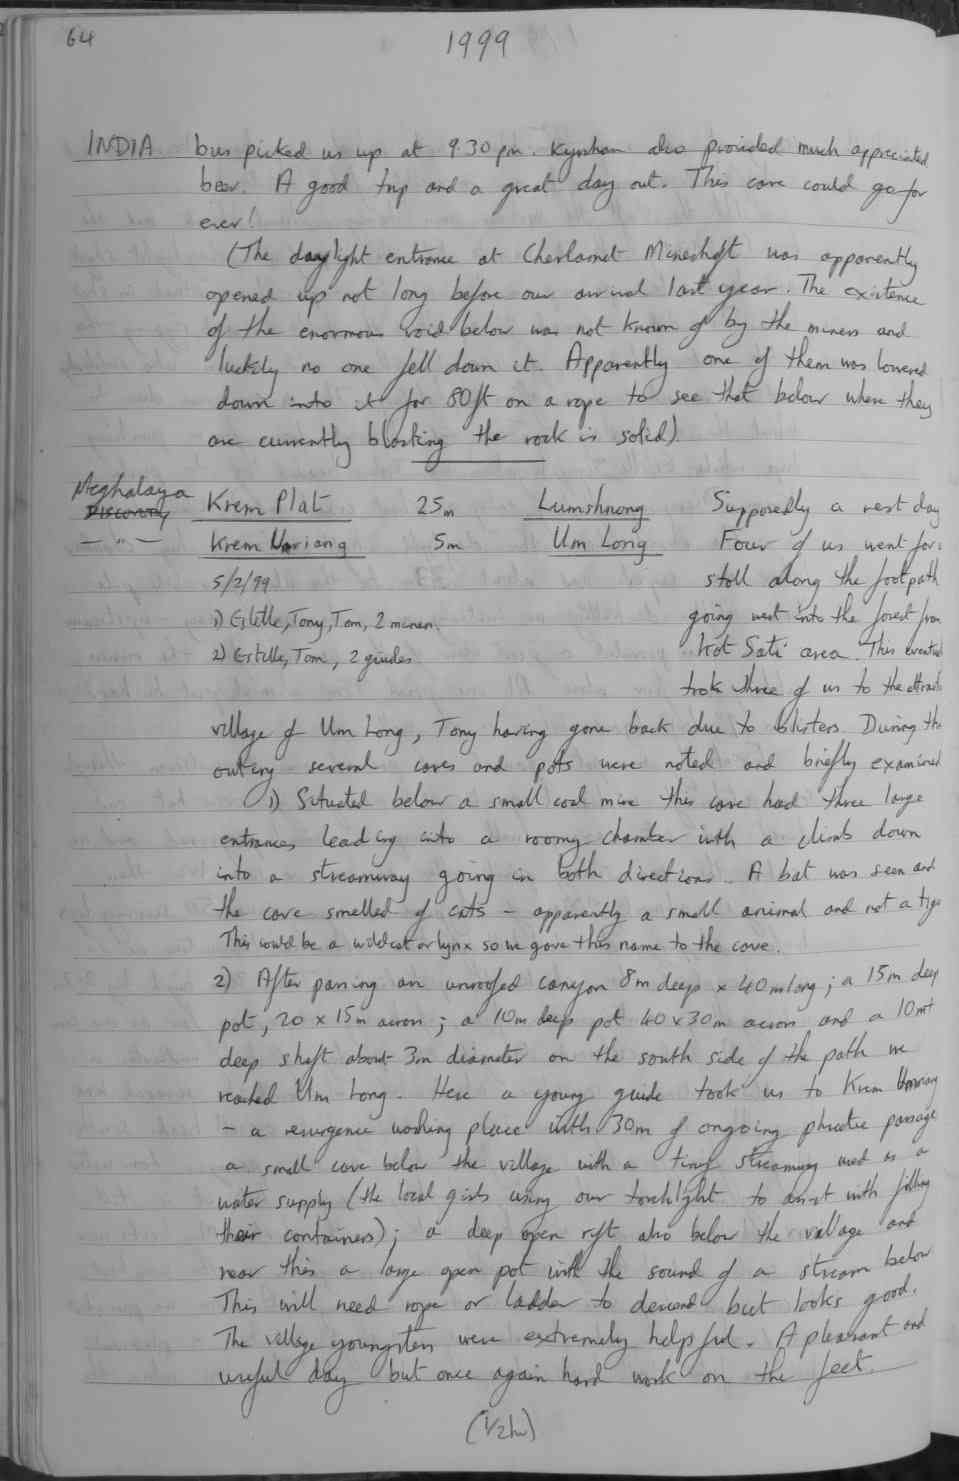 64
1999
INDIA bus picked us up at 9.30 pm. Kyrshan also provided much appreciated
beer. A good trip and a great day out. This cave could go for
ever!
(The daylight entrance at Cherlamet Mineshaft was apparently
opened up not long before our arrival last year. The existence
of the enormous void below was not known of by the miners and
luckily no one fell down it. Apparently one of them was lowered
down into it for 80ft on a rope to see that below where they
are currently blasting the rock is solid)
Meghalaya Krem Plat 25m Lumshnong Supposedly a rest day
Discovery
— " — Krem Umriang 5m Um Long Four of us went for
5/2/99 stoll along the footpath
1) Estelle, Tony, Tom, 2 miners. going west into the forest from
2) Estelle, Tom, 2 guides. Kot Sati area. This
took three of us to the
village of Um Long, Tony having gone back due to blisters. During the
outing several caves and pots were noted and briefly examined
1) Situated below a small coal mine this cave had three large
entrances leading into a roomy chamber with a climb down
into a streamway going in both directions. A bat was seen and
the cave smelled of cats – apparently a small animal and not a
This could be a wildcat or lynx so we gave this name to the cave.
2) After passing an unroofed canyon 8m deep x 40m long; a 15m deep
pot, 20 x 15m across; a 10m deep pot 40x30m across and a 10mt
deep shaft about 3m diameter on the south side of the path we
reached Um Long. Here a young guide took us to Krem Umriang
– a resurgence washing place with 30m of ongoing phreatic passage
a small cave below the village with a tiny streamway used as a
water supply (the local girls using our torchlight to assist with filling
their containers); a deep open rift also below the village and
near this a large open pot with the sound of a stream below
This will need rope or ladder to descend but looks good.
The village youngsters were extremely helpful. A pleasant and
useful day but once again hard work on the feet.
(1/2hr)